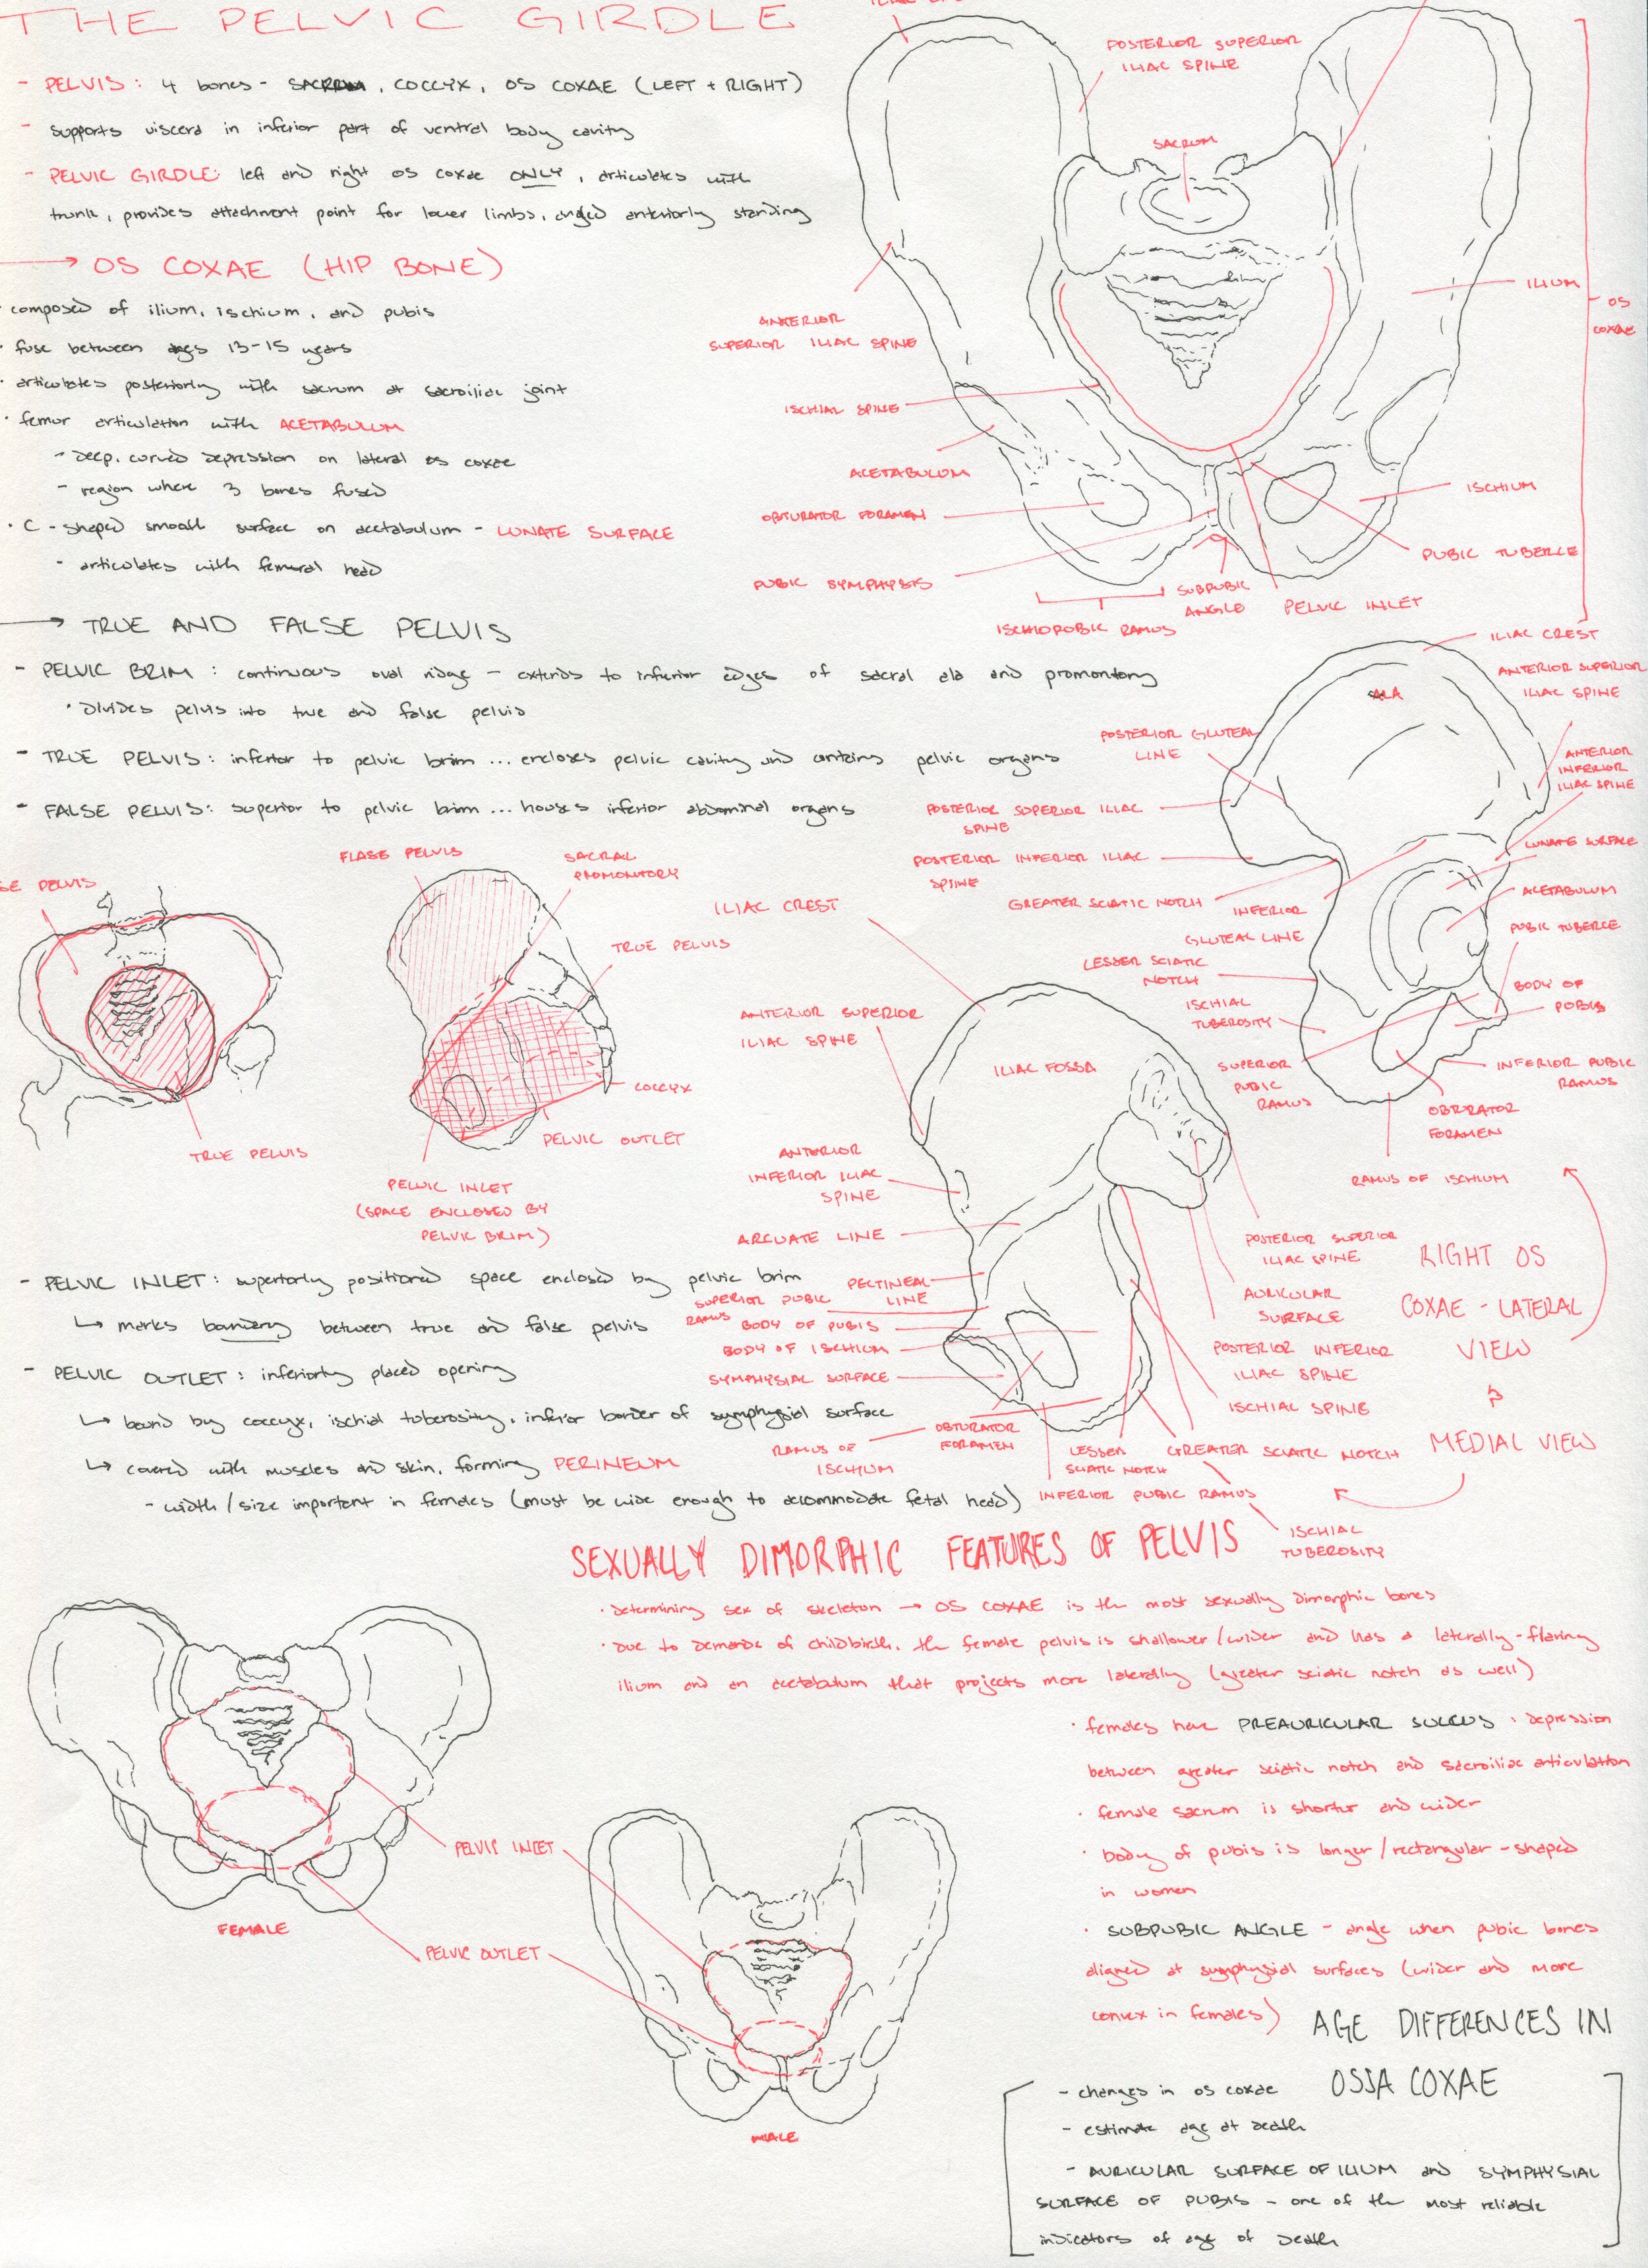 THE PELVIC GIRDLE
- PELVIS: 4 bones - SACRUM, COCCYX, OS COXAE (LEFT + RIGHT)
- supports viscera in inferior part of ventral body cavity
- PELVIC GIRDLE: left and right os coxae ONLY, articulates with
trunk, provides attachment point for lower limbs, angled anteriorly standing
→ OS COXAE (HIP BONE)
· composed of ilium, ischium, and pubis
· fuse between ages 13-15 years
· articulates posteriorly with sacrum at sacroiliac joint
· femur articulation with ACETABULUM
- deep, curved depression on lateral os coxae
- region where 3 bones fused
· C-shaped smooth surface on acetabulum - LUNATE SURFACE
- articulates with femoral head
POSTERIOR SUPERIOR
ILIAC SPINE
SACRUM
ANTERIOR
SUPERIOR ILIAC SPINE
ILIUM
OS
COXAE
ISCHIAL SPINE
ACETABULUM
OBTURATOR FORAMEN
PUBIC SYMPHYSIS
ISCHIUM
PUBIC TUBERCE
SUBPUBIC
ANGLE
PELVIC INLET
ISCHIOPUBIC RAMUS
→ TRUE AND FALSE PELVIS
- PELVIC BRIM: continuous oval ridge - extends to inferior edges of sacral ala and promontory
· divides pelvis into true and false pelvis
- TRUE PELVIS: inferior to pelvic brim ... encloses pelvic cavity and contains pelvic organs
- FALSE PELVIS: superior to pelvic brim ... houses inferior abdominal organs
ILIAC CREST
ANTERIOR SUPERIOR
ILIAC SPINE
ALA
POSTERIOR GLUTEAL
LINE
ANTERIOR
INFERIOR
ILIAC SPINE
POSTERIOR SUPERIOR ILIAC
SPINE
LUNATE SURFACE
POSTERIOR INFERIOR ILIAC
SPINE
ACETABULUM
GREATER SCIATIC NOTCH
INFERIOR
GLUTEAL LINE
PUBIC TUBERCE
LESSER SCIATIC
NOTCH
BODY OF
PUBIS
ISCHIAL
TUBEROSITY
SUPERIOR
PUBIC
RAMUS
INFERIOR PUBIC
RAMUS
OBTRATOR
FORAMEN
RAMUS OF ISCHIUM
SE PELVIS
TRUE PELVIS
FLASE PELVIS
SACRAL
PROMONTORY
TRUE PELVIS
COCCYX
PELVIC OUTLET
PELVIC INLET
(SPACE ENCLOSED BY
PELVIC BRIM)
ILIAC CREST
ANTERIOR SUPERIOR
ILIAC SPINE
ILIAC FOSSA
ANTERIOR
INFERIOR ILIAC
SPINE
ARCUATE LINE
PECTINEAL
LINE
SUPERIOR PUBIC
RAMUS
BODY OF PUBIS
BODY OF ISCHIUM
SYMPHYSIAL SURFACE
OBTURATOR
FORAMEN
RAMUS OF
ISCHIUM
LESSER
SCIATIC NOTCH
GREATER SCIATIC NOTCH
INFERIOR PUBIC RAMUS
ISCHIAL
TUBEROSITY
POSTERIOR SUPERIOR
ILIAC SPINE
AURICULAR
SURFACE
POSTERIOR INFERIOR
ILIAC SPINE
ISCHIAL SPINE
RIGHT OS
COXAE - LATERAL
VIEW
MEDIAL VIEW
- PELVIC INLET: superiorly positioned space enclosed by pelvic brim
↳ marks boundary between true and false pelvis
- PELVIC OUTLET: inferiorly placed opening
↳ bound by coccyx, ischial tuberosity, inferior border of symphysial surface
↳ covered with muscles and skin, forming PERINEUM
- width/size important in females (must be wide enough to accommodate fetal head)
SEXUALLY DIMORPHIC FEATURES OF PELVIS
· determining sex of skeleton → OS COXAE is the most sexually dimorphic bones
· due to demands of childbirth, the female pelvis is shallower/wider and has a laterally-flaring
ilium and an acetabulum that projects more laterally (greater sciatic notch as well)
· females have PREAURICULAR SULCUS: depression
between greater sciatic notch and sacroiliac articulation
· female sacrum is shorter and wider
· body of pubis is longer/rectangular-shaped
in women
· SUBPUBIC ANGLE - angle when pubic bones
aligned at symphysial surfaces (wider and more
convex in females)
PELVIC INLET
FEMALE
PELVIC OUTLET
MALE
AGE DIFFERENCES IN
OSSA COXAE
- changes in os coxae
- estimate age at death
- AURICULAR SURFACE OF ILIUM and SYMPHYSIAL
SURFACE OF PUBIS - one of the most reliable
indicators of age of death